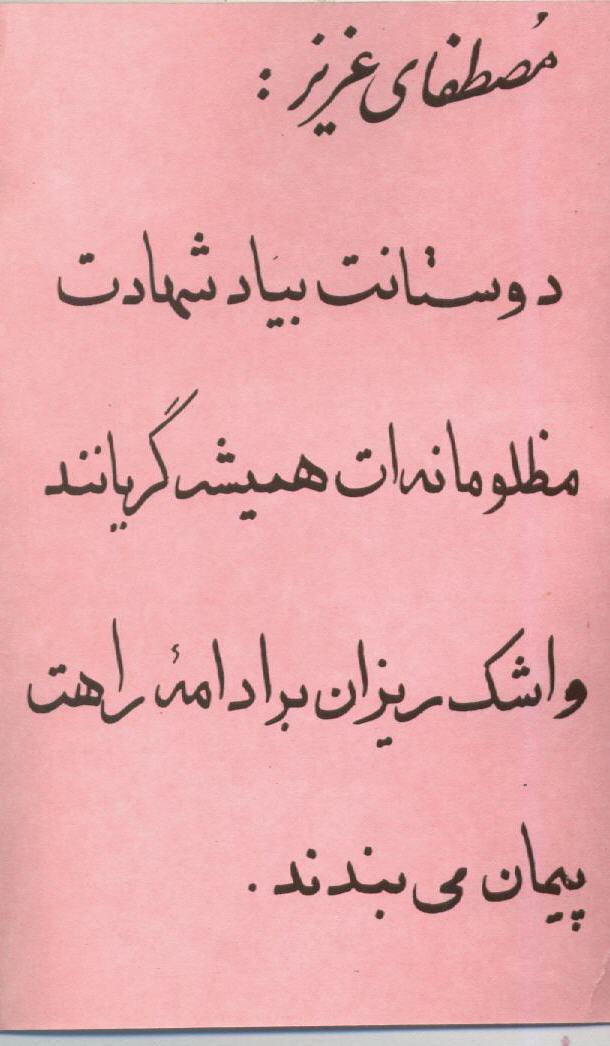 مُصطفای عزیز :
دوستانت بیَاد شهادت
مظلومانه‌ات همیشه گریانند
و اشک ریزان بر ادامهٔ راهت
پیمان می بندند .